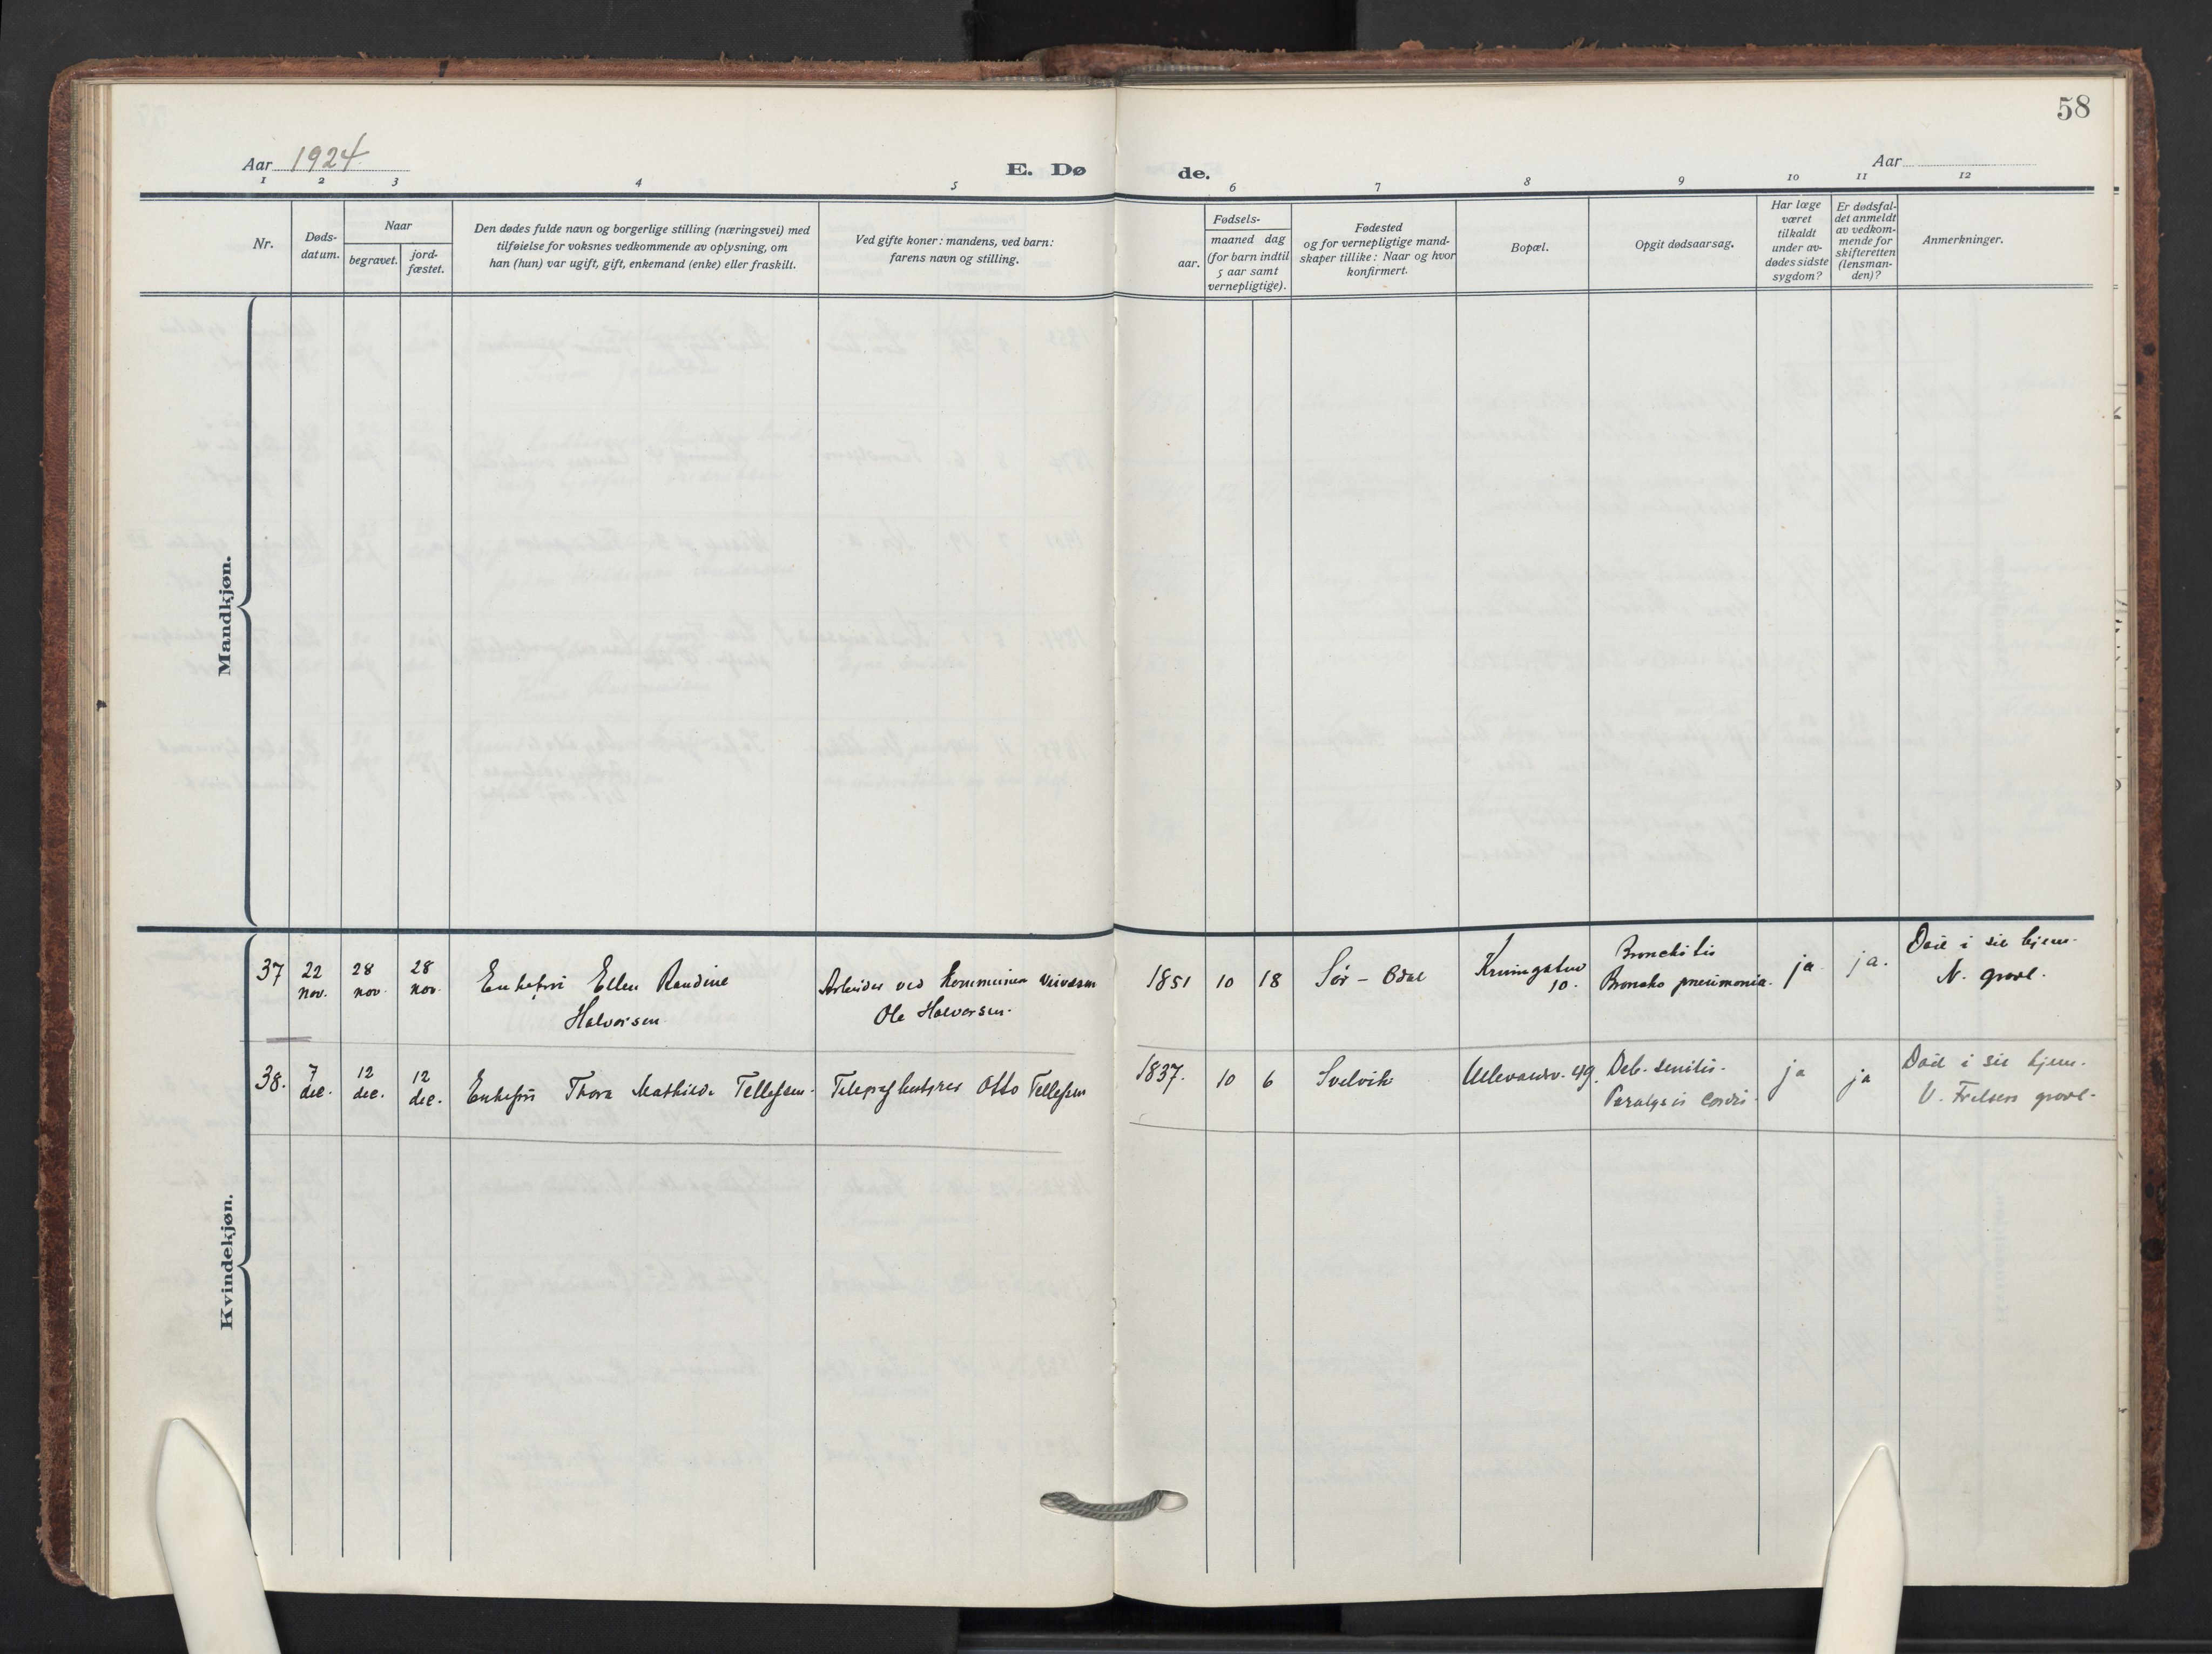 58
Aar 1924
E. Dø
de.
Aar
1 2 3 4 5 6 7 8 9 10 11 12
Nr.
Døds-
datum.
Naar
begravet.
jord-
fæstet.
Den dødes fulde navn og borgerlige stilling (næringsvei) med
tilføielse for voksnes vedkommende av oplysning, om
han (hun) var ugift, gift, enkemand (enke) eller fraskilt.
Ved gifte koner: mandens, ved barn:
farens navn og stilling.
aar.
Fødsels-
maaned dag
(for barn indtil
5 aar samt
vernepligtige).
Fødested
og for vernepligtige mand-
skaper tillike: Naar og hvor
konfirmert.
Bopæl.
Opgit dødsaarsag.
Har læge
været
tilkaldt
under av-
dødes sidste
sygdom?
Er dødsfal-
det anmeldt
av vedkom-
mende for
skifteretten
(lensman-
den)?
Anmerkninger.
Mandkjøn.
Kvindekjøn.
37
22
nov.
28
nov.
28
nov.
Enkefru Ellen Randine
Halvorsen
Arbeider ved Kommunen
Ole Halvorsen.
1851
10
18
Sør-Odal
10.
Bronchitis
Broncho pneumonia.
ja
ja.
Død i sit hjem.
N. gravl.
38.
7
dec.
12
dec.
12
dec.
Enkefru Thora Mathilde Tellefsen.
Otto Tellefsen
1837.
10
6
Svelvik
Ullevaalsv. 49.
Deb. senilis.
Paralysis cordis.
ja
ja
Død i sit hjem.
V. Frelsers gravl.